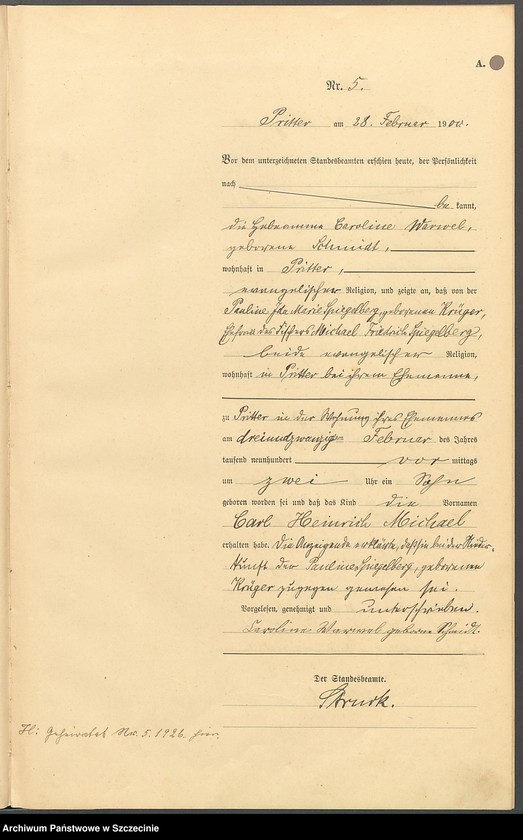 A.
Nr. 5.
Pritter am 28. Februar 1900.
Vor dem unterzeichneten Standesbeamten erschien heute, der Persönlichkeit
nach
be kannt,
die Hebeamme Caroline Warwel,
geborene Schmidt,
wohnhaft in Pritter,
evangelischer Religion, und zeigte an, daß von der
Pauline Ida Marie Spiegelberg, geborenen Krüger,
Ehefrau des Michael Friedrich Spiegelberg,
beide evangelischer Religion,
wohnhaft in Pritter bei ihrem Ehemanne,
zu Pritter in der Wohnung ihres Ehemannes
am dreiundzwanzigsten Februar des Jahres
tausend neunhundert vor mittags
um zwei Uhr ein Sohn
geboren worden sei und daß das Kind die Vornamen
Carl Heinrich Michael
erhalten habe. Die Anzeigende erklärte, daß sie bei der Nieder-
kunft der Pauline Spiegelberg, geborenen
Krüger zugegen gewesen sei.
Vorgelesen, genehmigt und unterschrieben.
Caroline Warwel geborne Schmidt.
Der Standesbeamte.
Struck.
H: Geheiratet No. 5. 1926. hier.
Archiwum Państwowe w Szczecinie